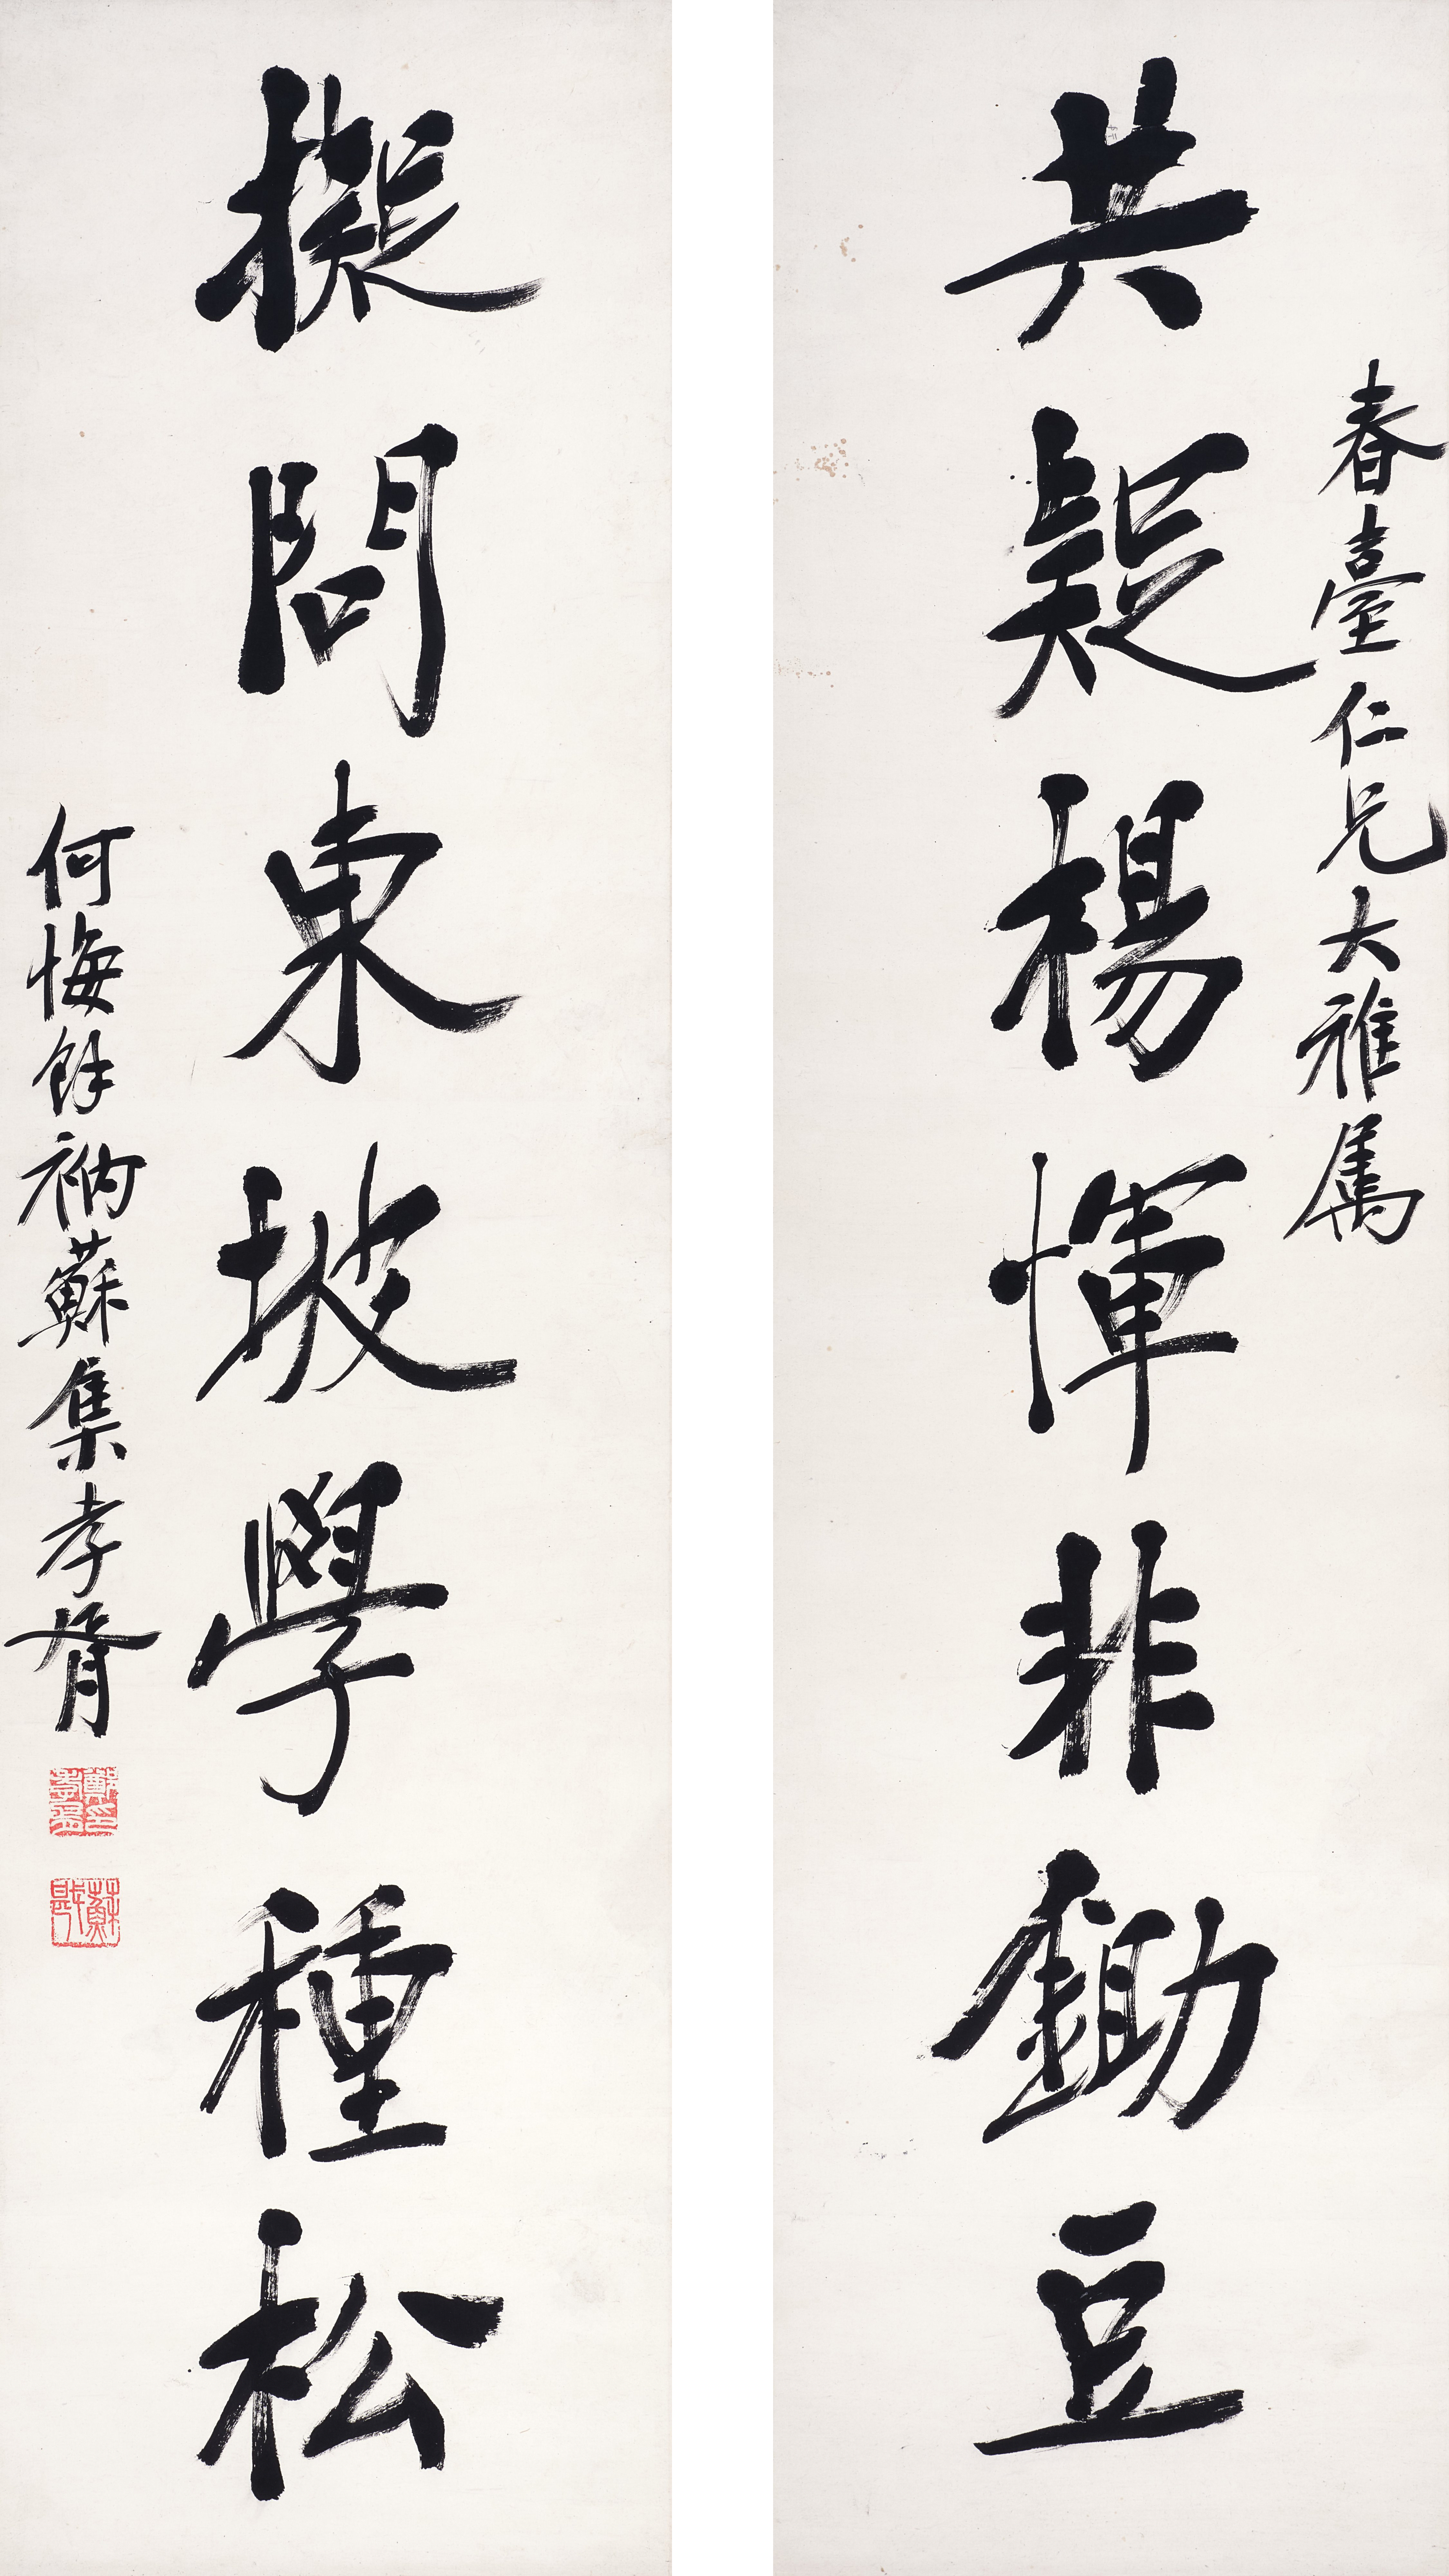 春臺仁兄大雅屬
共疑楊惲非鋤豆
擬問東坡學種松
何悔餘衲蘇集孝胥